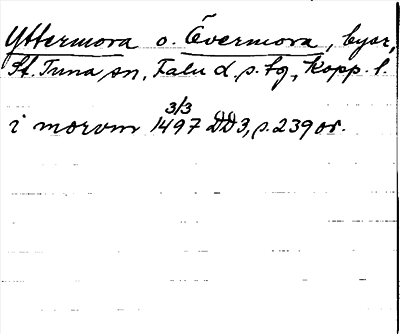 Yttermora o. Övermora, byar,
St. Tuna sn, Falu d. s. tg, Kopp. l.
3/3
i morvm 1497 DD3, s. 239 or.